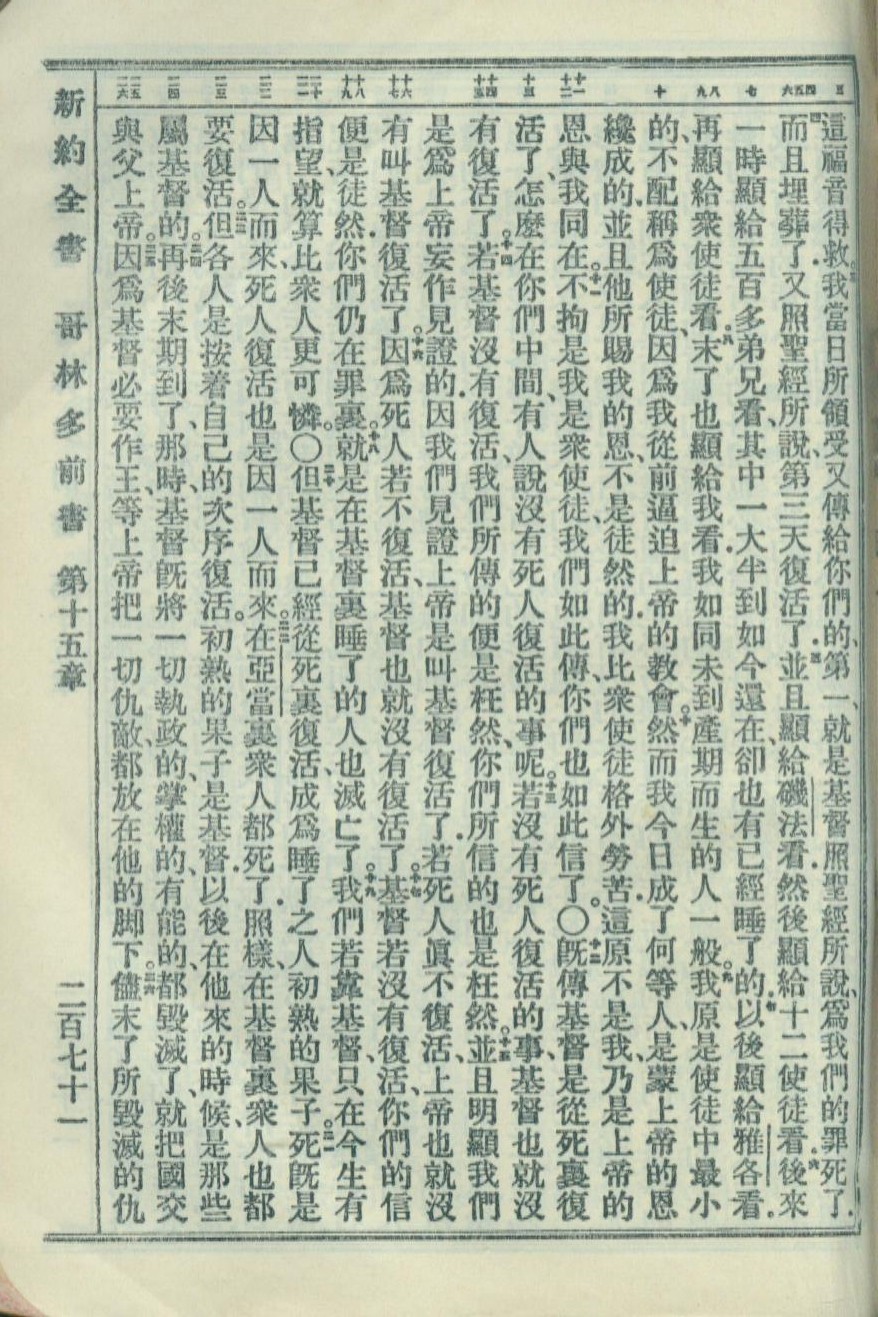 三
四五六
七
八九
十
十一十二
十三
十四十五
十六十七
十八十九
二十二一
二二
二三
二四
二五二六
這福音得救我當日所領受又傳給你們的第一就是基督照聖經所說爲我們的罪死了
而且埋葬了又照聖經所說第三天復活了並且顯給磯法看然後顯給十二使徒看後來
一時顯給五百多弟兄看其中一大半到如今還在卻也有已經睡了的以後顯給雅各看
再顯給衆使徒看末了也顯給我看我如同未到產期而生的人一般我原是使徒中最小
的不配稱爲使徒因爲我從前逼迫上帝的教會然而我今日成了何等人是蒙上帝的恩
纔成的並且他所賜我的恩不是徒然的我比衆使徒格外勞苦這原不是我乃是上帝的
恩與我同在不拘是我是衆使徒我們如此傳你們也如此信了〇旣傳基督是從死裏復
活了怎麼在你們中間有人說沒有死人復活的事呢若沒有死人復活的事基督也就沒
有復活了若基督沒有復活我們所傳的便是枉然你們所信的也是枉然並且明顯我們
是爲上帝妄作見證的因我們見證上帝是叫基督復活了若死人眞不復活上帝也就沒
有叫基督復活了因爲死人若不復活基督也就沒有復活了基督若沒有復活你們的信
便是徒然你們仍在罪裏就是在基督裏睡了的人也滅亡了我們若靠基督只在今生有
指望就算比衆人更可憐〇但基督已經從死裏復活成爲睡了之人初熟的果子死旣是
因一人而來死人復活也是因一人而來在亞當裏衆人都死了照樣在基督裏衆人也都
要復活但各人是按着自己的次序復活初熟的果子是基督以後在他來的時候是那些
屬基督的再後末期到了那時基督旣將一切執政的掌權的有能的都毀滅了就把國交
與父上帝因爲基督必要作王等上帝把一切仇敵都放在他的脚下儘末了所毀滅的仇
新約全書 哥林多前書 第十五章 二百七十一